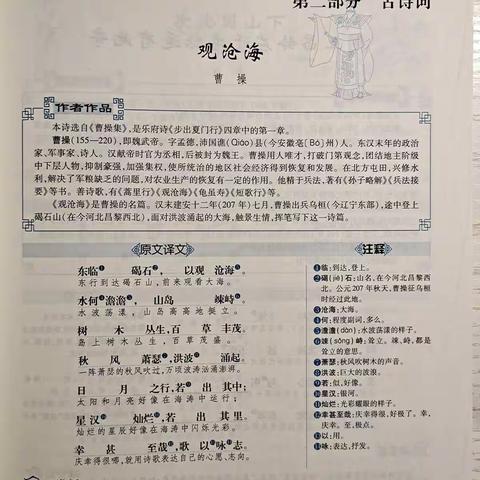 第二部分 古诗词
观沧海
曹 操
作者作品
本诗选自《曹操集》,是乐府诗《步出夏门行》四章中的第一章。
曹操(155—220),即魏武帝。字孟德,沛国谯(Qiáo)县(今安徽亳(Bó)州)人。东汉末年的政治
家、军事家、诗人。汉献帝时官为丞相,后被封为魏王。曹操用人唯才,打破门第观念,团结地主阶级
中下层人物,抑制豪强,加强集权,使所统治的地区社会经济得到恢复和发展。在北方屯田,兴修水
利,解决了军粮缺乏的问题,对农业生产的恢复有一定的作用。他精于兵法,著有《孙子略解》《兵法接
要》等书。善诗歌,有《蒿里行》《观沧海》《龟虽寿》《短歌行》等。
《观沧海》是曹操的名篇。汉末建安十二年(207年)七月,曹操出兵乌桓(今辽宁东部),途中登上
碣石山(在今河北昌黎西北),面对洪波涌起的大海,触景生情,挥笔写下这一诗篇。
原文译文
东临❶ 碣石❷, 以观 沧海❸。
东行到达碣石山,前来观看大海。
水何❹澹澹❺, 山岛 竦峙❻。
水波荡漾,山岛高高地挺立。
树 木 丛生,百 草 丰茂。
岛上树木丛生,百草茂盛。
秋 风 萧瑟❼,洪波❽ 涌起。
一阵萧瑟的秋风吹过,万顷波涛汹涌澎湃。
日 月 之行,若❾ 出 其中;
太阳和月亮好像在海涛中运行;
星汉❿ 灿烂⓫,若 出 其里。
灿烂的星辰好像在海涛中闪烁光彩。
幸 甚 至哉⓬,歌 以⓭咏⓮志。
庆幸得很哪,就用诗歌表达自己的心愿、志向。
注释
❶临:到达,登上。
❷碣(jié)石:山名,在今河北昌黎西
北。公元207年秋天,曹操征乌桓
时经过此地。
❸沧海:大海。
❹何:程度副词,多么。
❺澹澹(dàn):水波荡漾的样子。
❻竦(sǒng)峙:耸立。竦、峙,都是
耸立的意思。
❼萧瑟:秋风吹树木的声音。
❽洪波:巨大的波浪。
❾若:似,好像。
❿星汉:银河。
⓫灿烂:光彩耀眼的样子。
⓬幸甚至哉:庆幸得很,好极了。幸,
庆幸。至,极点。
⓭以:用。
⓮咏:表达,抒发。